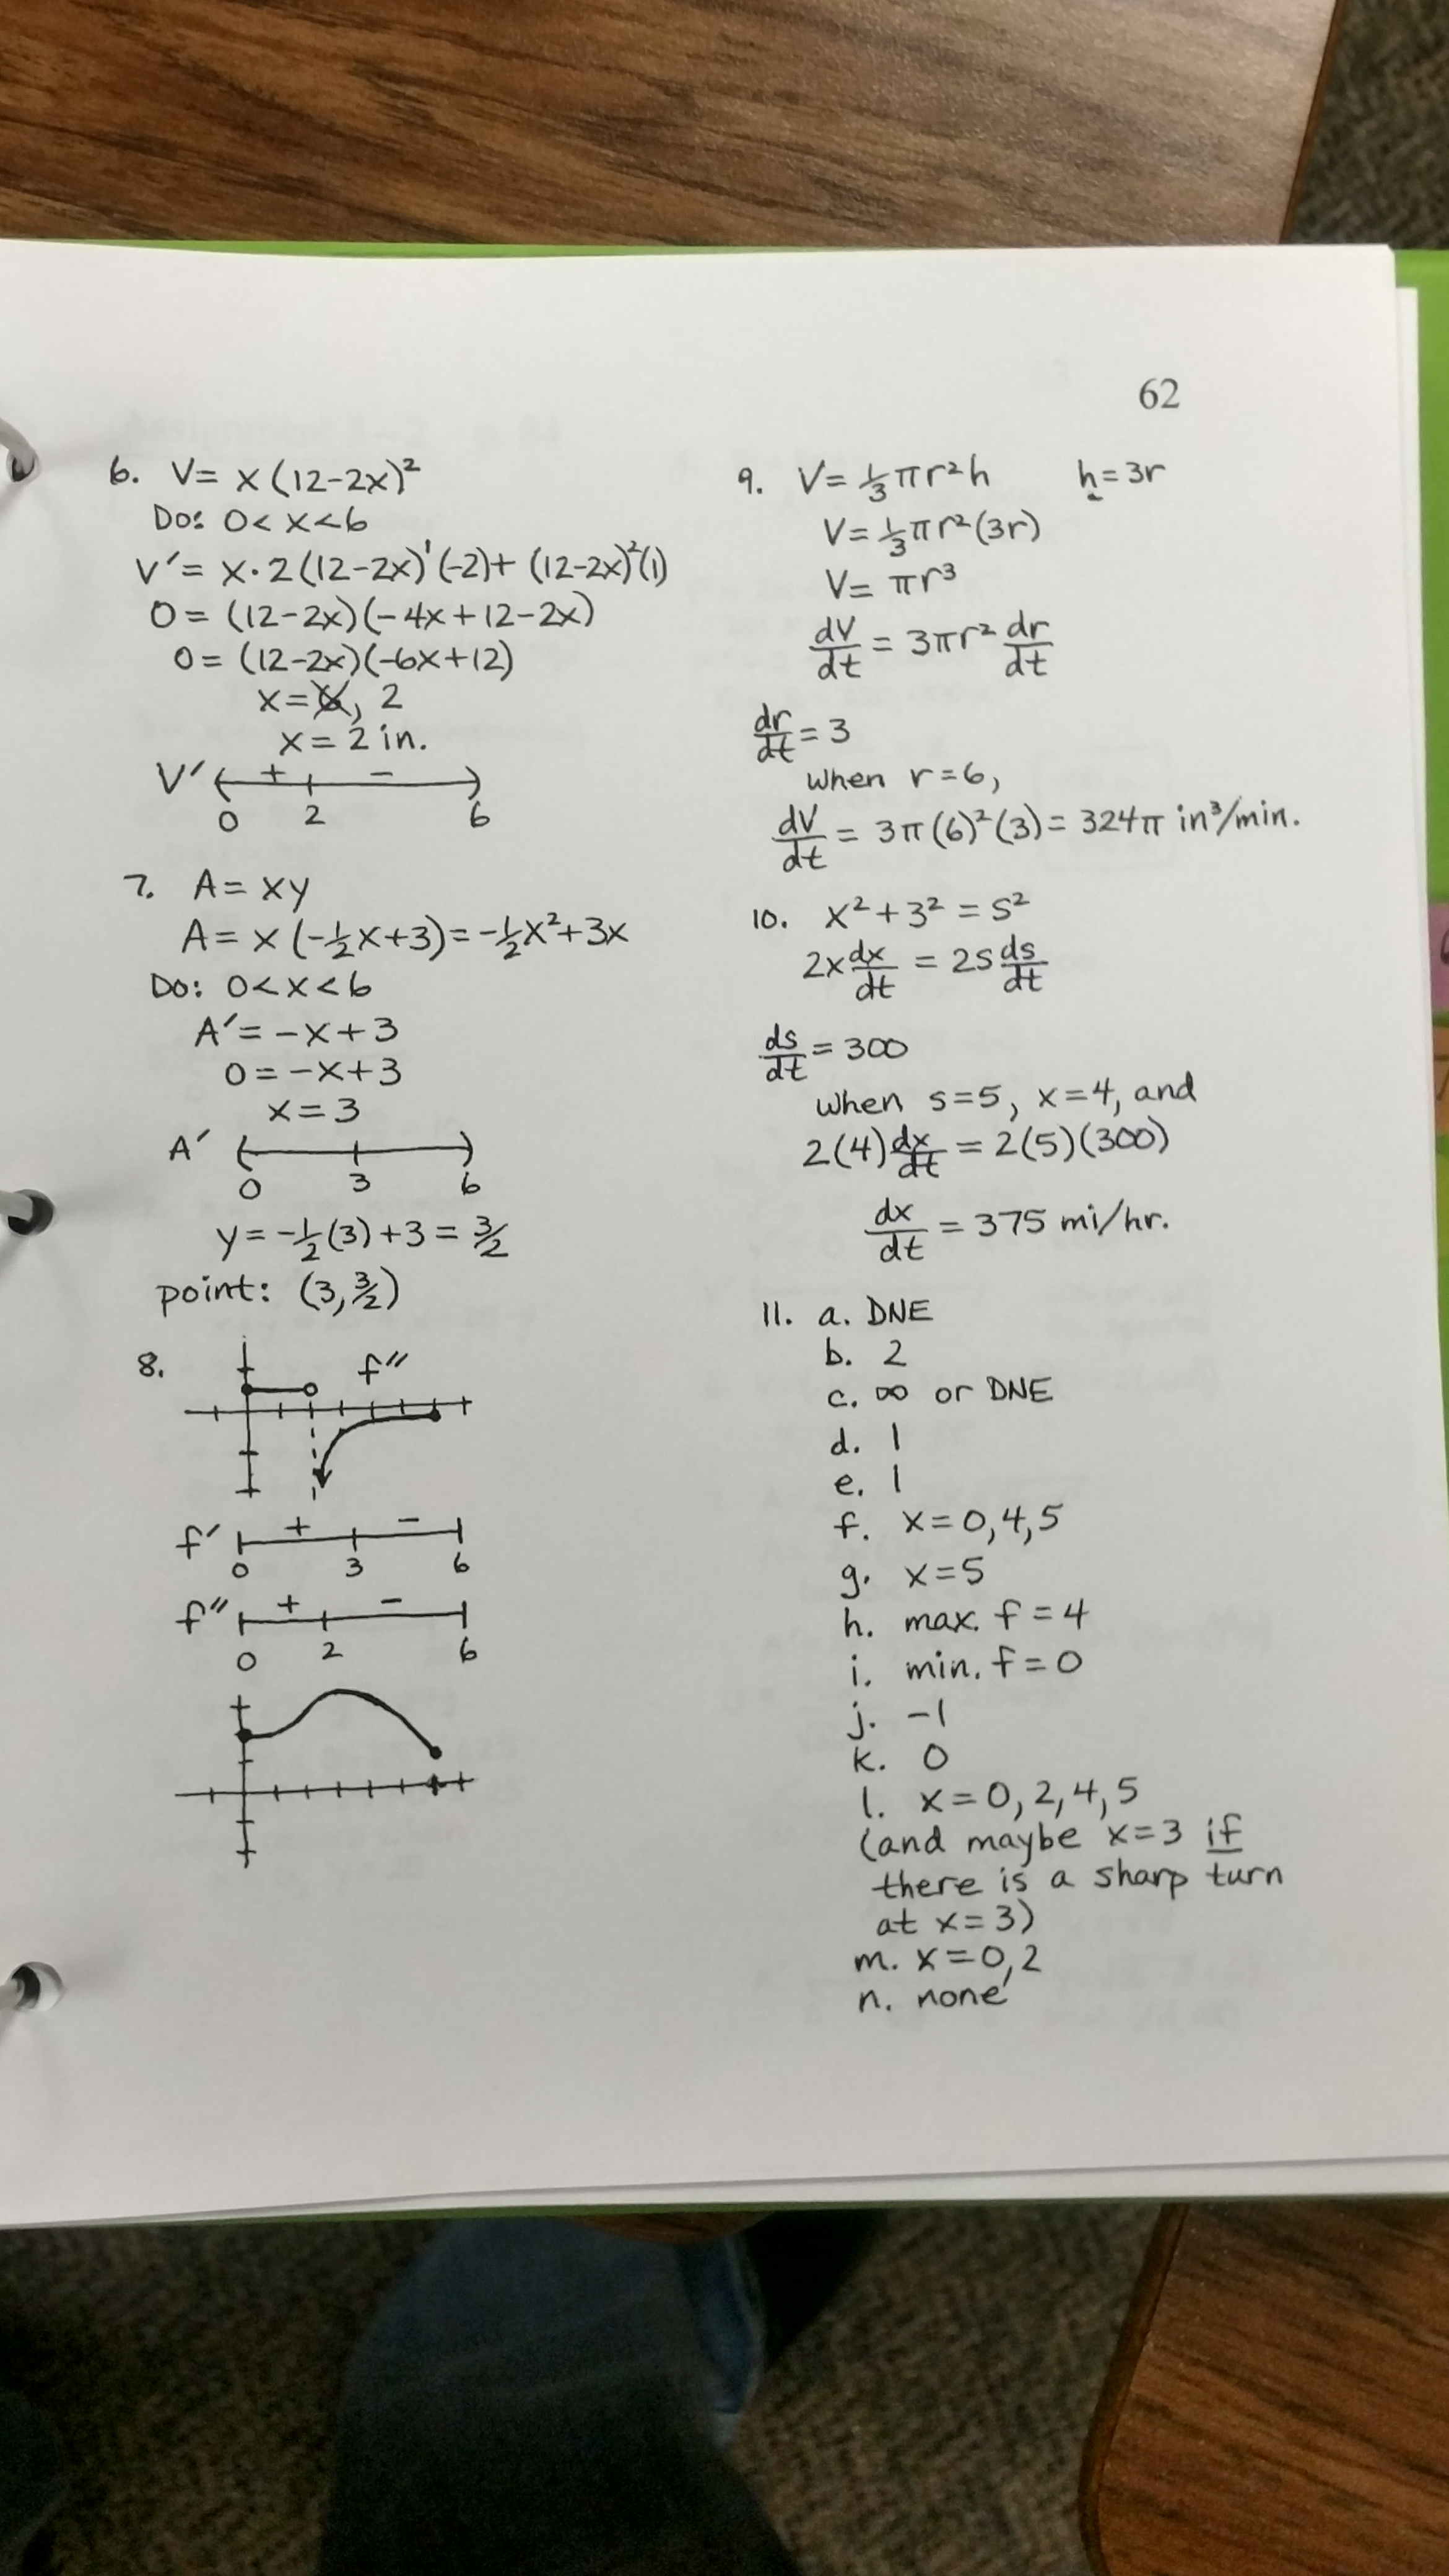 62
6. V = x(12-2x)²
Do: 0 < x < 6
V′ = x·2(12-2x)¹(-2) + (12-2x)²(1)
0 = (12-2x)(-4x+12-2x)
0 = (12-2x)(-6x+12)
x = 6, 2
x = 2 in.
V′ + -
0 2 6
7. A = xy
A = x(-½x+3) = -½x²+3x
Do: 0 < x < 6
A′ = -x+3
0 = -x+3
x = 3
A′
0 3 6
y = -½(3)+3 = 3/2
point: (3, 3/2)
8. f″
f′ + -
0 3 6
f″ + -
0 2 6
9. V = ⅓πr²h h = 3r
V = ⅓πr²(3r)
V = πr³
dV/dt = 3πr² dr/dt
dr/dt = 3
when r = 6,
dV/dt = 3π(6)²(3) = 324π in³/min.
10. x² + 3² = s²
2x dx/dt = 2s ds/dt
ds/dt = 300
when s=5, x=4, and
2(4) dx/dt = 2(5)(300)
dx/dt = 375 mi/hr.
11. a. DNE
b. 2
c. ∞ or DNE
d. 1
e. 1
f. x = 0,4,5
g. x = 5
h. max. f = 4
i. min. f = 0
j. -1
k. 0
l. x = 0, 2, 4, 5
(and maybe x=3 if
there is a sharp turn
at x=3)
m. x = 0,2
n. none